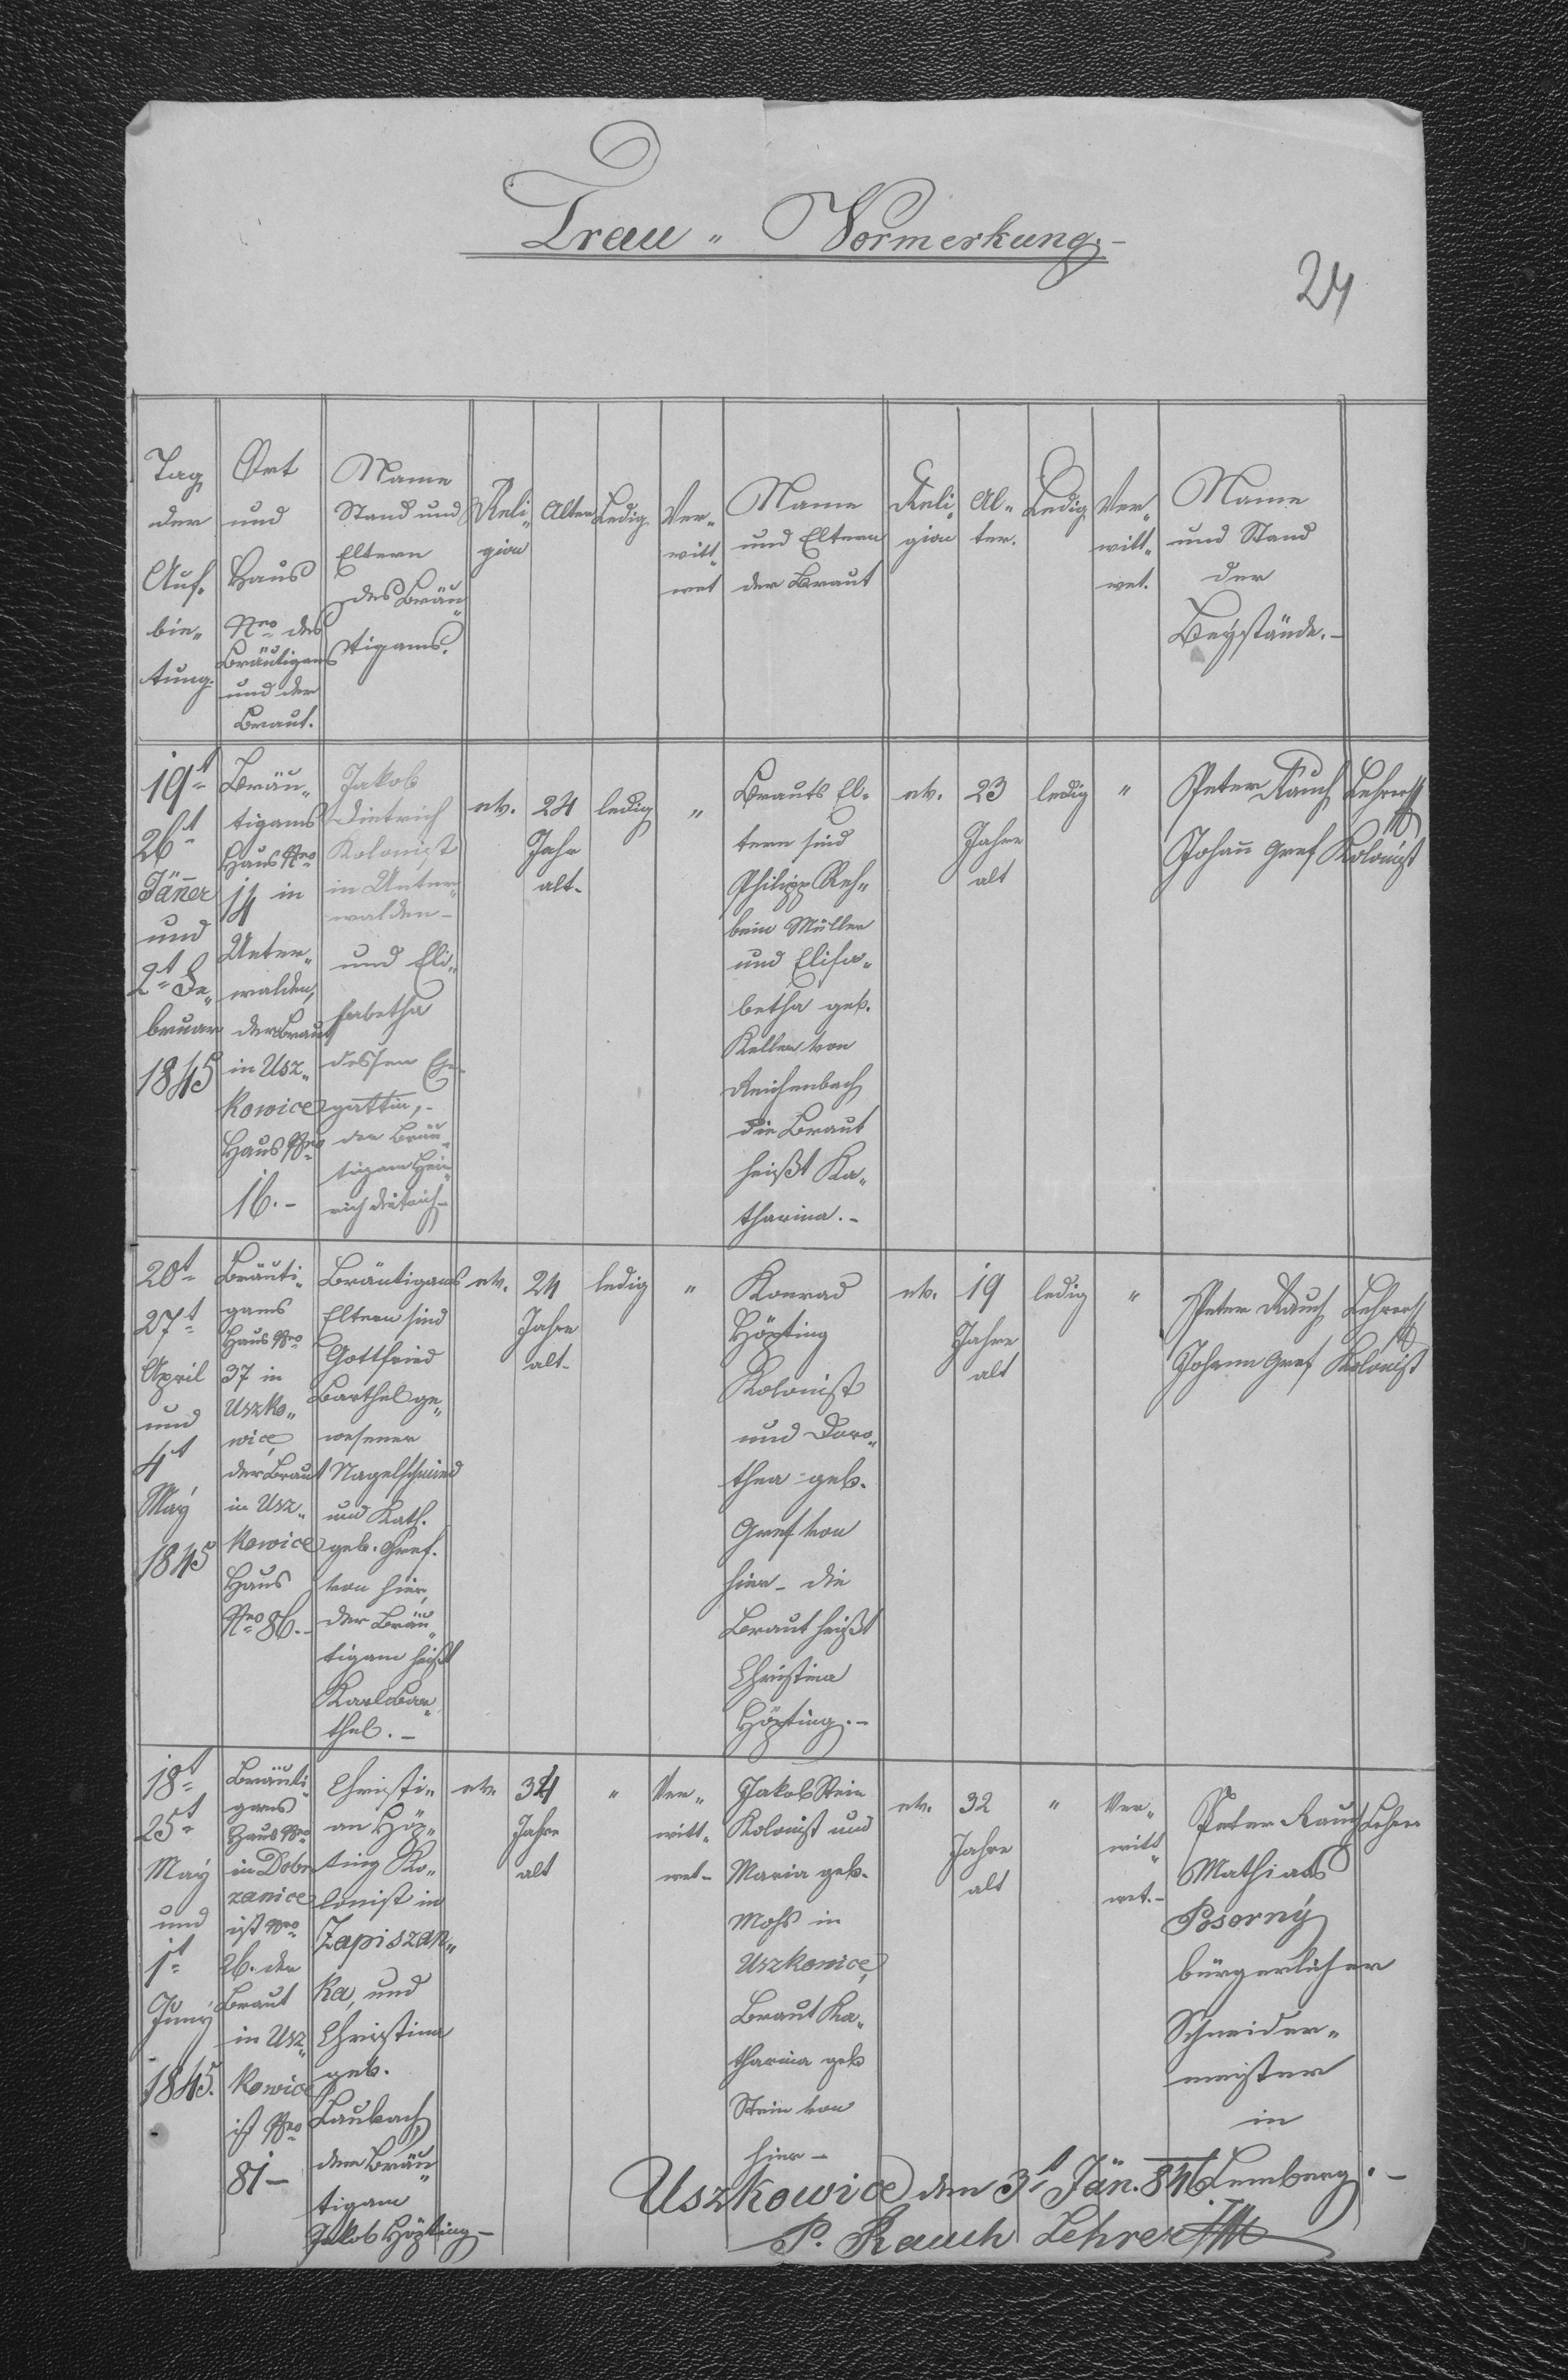 Trau „ Vormerkung.-
24
Tag
der
Auf„
bie„
tung.
Ort
und
Haus
Nro des
Bräutigams
und der
Braut.
Name
Stand und
Eltern
des Bräu„
tigams.
Reli„
gion
Alter
Ledig.
Ver„
witt„
wet
Name
und Eltern
der Braut
Reli„
gion
Al„
ter.
Ledig
Ver„
witt„
wet.
Name
und Stand
der
Beystände.-
19t
26t
Jänner
und
2t Fe„
bruar
1845
Bräu„
tigams
Haus Nro
14 in
Unter„
walden,
der Braut
in Usz„
kowice
Haus Nro
16.-
Jakob
Dietrich
Kolonist
in Unter„
walden-
und Eli„
sabetha
dessen Ehe-
gattin,-
der Bräu„
tigam Hein„
rich Dietrich-
ev.
24
Jahr
alt-
ledig
„
Brauts El„
tern sind
Philipp Reh„
bein Müller
und Elisa„
betha geb.
Keller von
Reichenbach
die Braut
heißt Ka„
tharina.-
ev.
23
Jahre
alt
ledig
„
Peter Rauch Lehrer
Johann Gref Kolonist
20t
27t
April
und
4t
May
1845
Bräuti„
gams
Haus Nro
37 in
Uszko„
wice,
der Braut
in Usz„
kowice
Haus
Nro 86.-
Bräutigams
Eltern sind
Gottfried
Barthel ge„
wesener
Nagelschmied
und Kath.
geb. Gref.
von hier,
der Bräu„
tigam heißt
Karl Bar„
thel.-
ev.
24
Jahre
alt-
ledig
„
Konrad
Höpting
Kolonist
und Doro„
thea geb.
Gref von
hier- die
Braut heißt
Christina
Höpting.-
ev.
19
Jahre
alt
ledig
„
Peter Rauch Lehrer
Johann Gref Kolonist
18t
25t
May
und
1t
Juny
1845.
Bräuti„
gams
Haus Nro
in Dobr
zanice
ist Nro
26. der
Braut
in Usz„
kowice
ist Nro
81-
Christi„
an Höp„
ting Ko„
lonist in
Zapiszan„
ka, und
Christina
geb.
Laubach,
dem Bräu„
tigam
Jakob Höpting-
ev.
34
Jahre
alt
„
Ver„
witt„
wet-
Jakob Stein
Kolonist und
Maria geb.
Mohs in
Uszkowice,
Braut Ka„
tharina geb
Stein von
hier-
ev.
32
Jahre
alt
„
Ver„
witt„
wet.-
Peter Rauch Lehrer
Mathias
Posorný
bürgerlicher
Schneider„
meister
in
Lemberg.-
Uszkowice den 3t Jän. 846
P. Rauch Lehrer